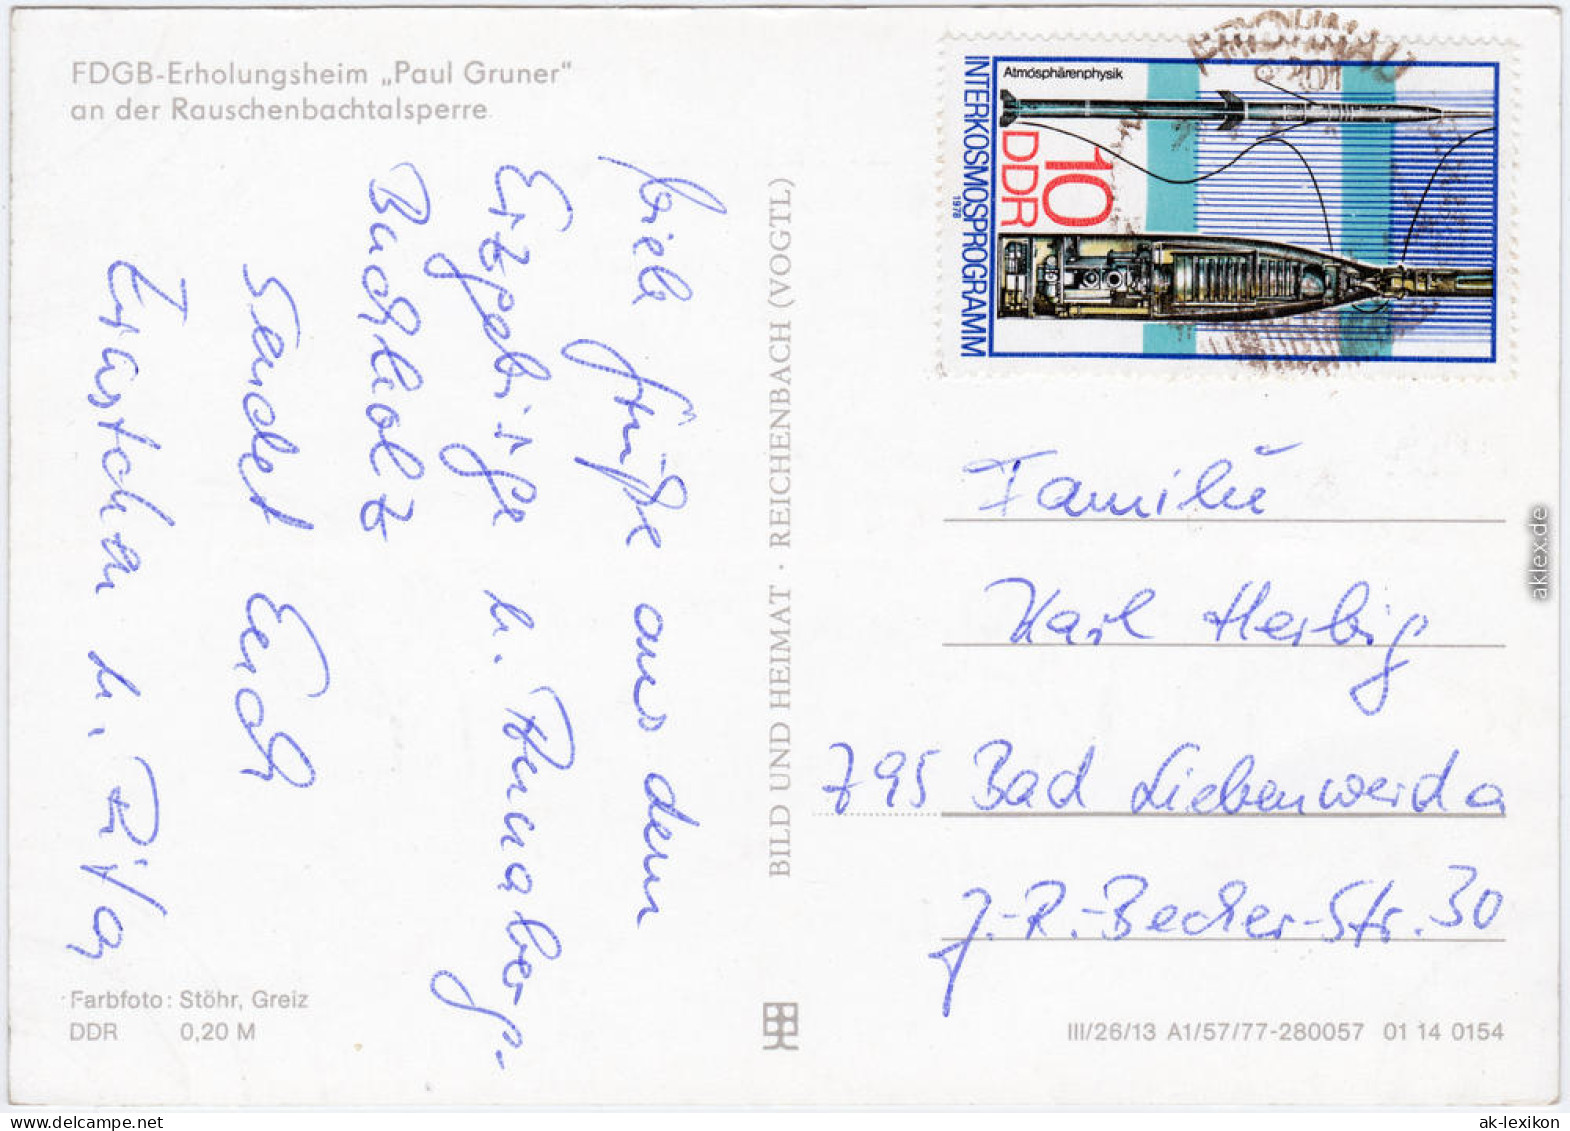 FDGB-Erholungsheim „Paul Gruner"
an der Rauschenbachtalsperre
Viele Grüße aus dem
Erzgebirge u. Annaberg-
Buchholz
sendet Euch
u. Rita
BILD UND HEIMAT · REICHENBACH (VOGTL)
INTERKOSMOSPROGRAMM
1978
Atmosphärenphysik
10
DDR
Familie
Karl Herbig
795 Bad Liebenwerda
J.-R.-Becher-Str. 30
Farbfoto: Stöhr, Greiz
DDR 0,20 M
III/26/13 A1/57/77-280057 01 14 0154
aklex.de
ak-lexikon